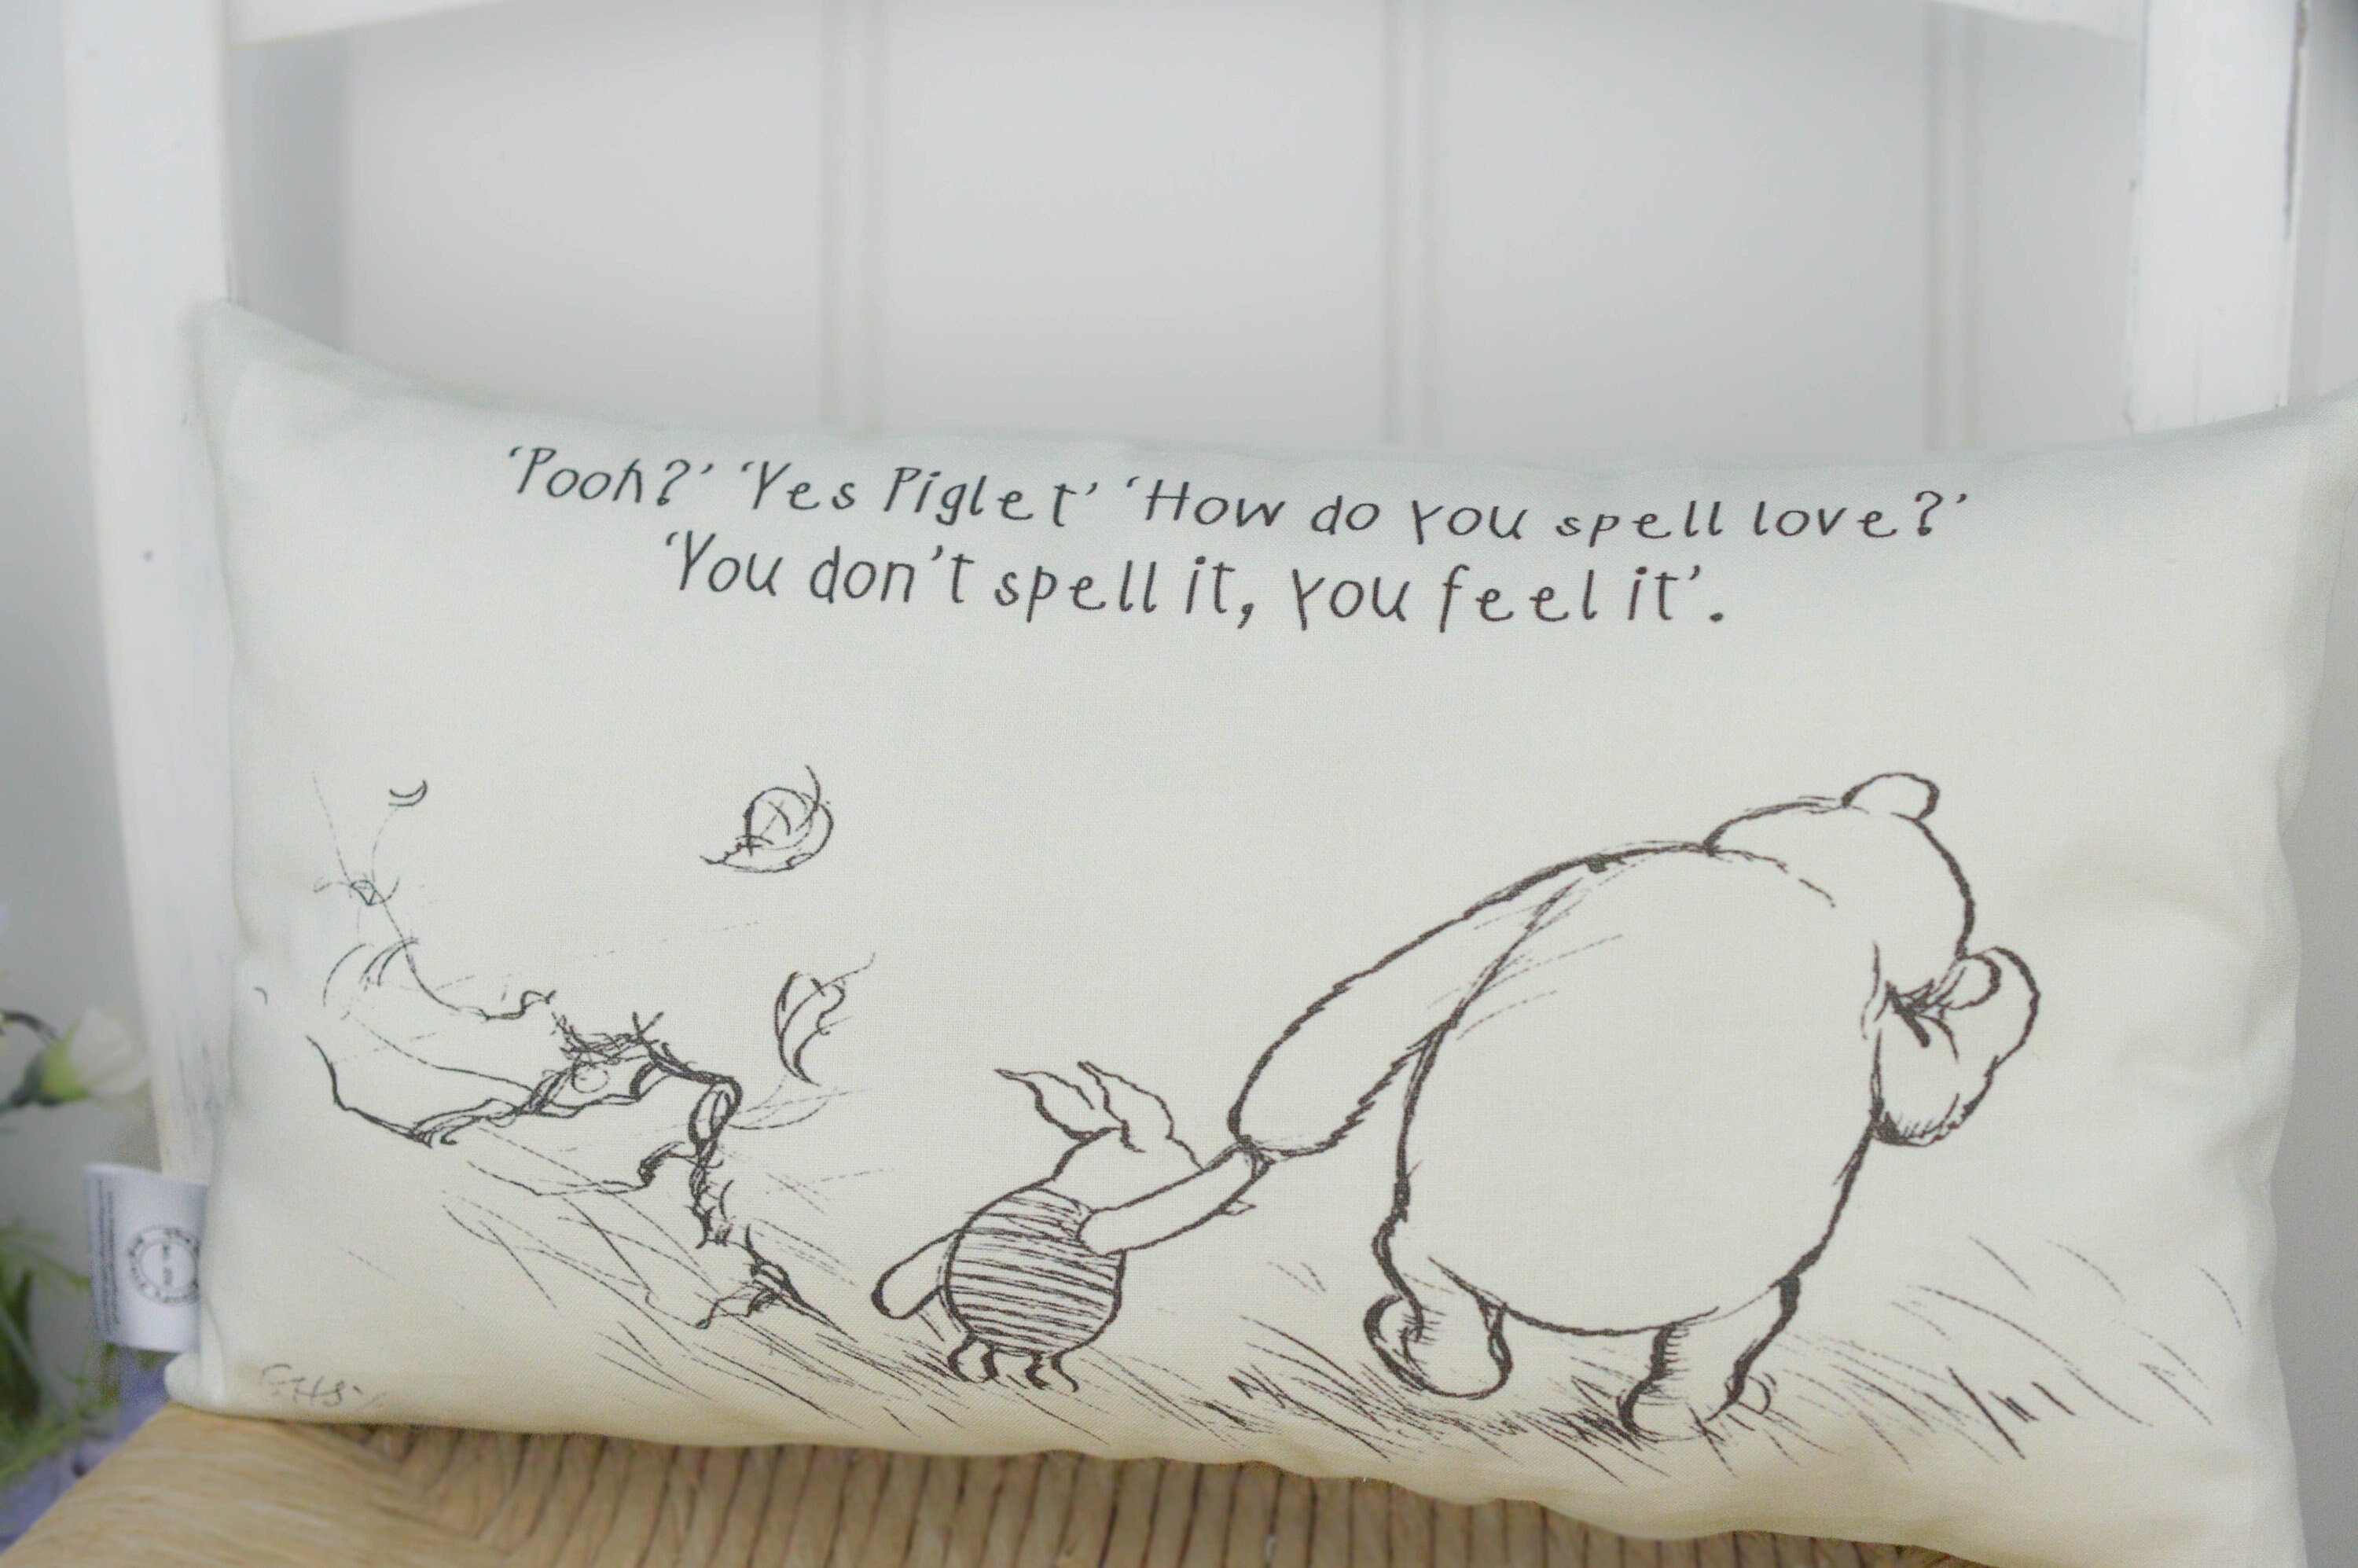 ‘Pooh?’ ‘Yes Piglet’ ‘How do you spell love?’
‘You don’t spell it, you feel it’.